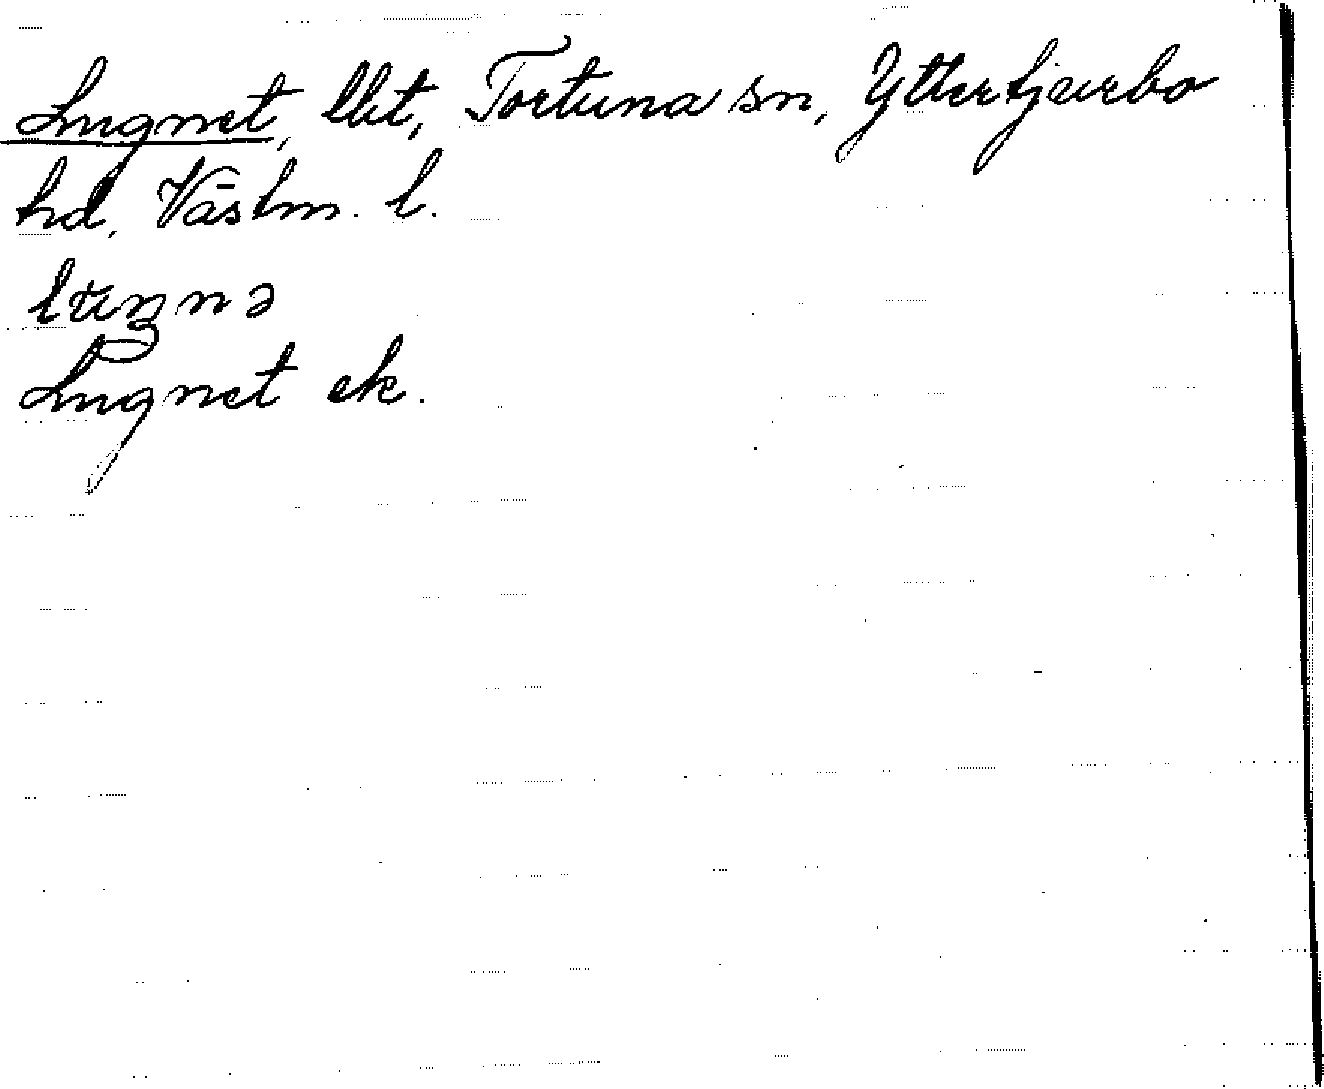 Lugnet, lht, Tortuna sn, Ytterkjurbo
hd, Västm. l.
Lugnet ek.